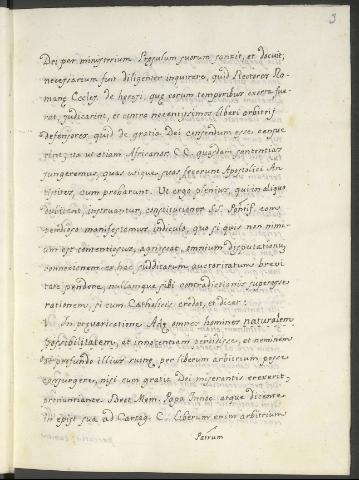 3
Dei per ministerium Praesulum suorum sanxit, et docuit;
necessarium fuit diligenter inquirere, quid Rectores Ro-
manę Eccles. de hęresi, quę eorum temporibus exorta fue-
rat, judicarint, et contra nocentissimos liberi arbitrij
defensores, quid de gratia Dei censendum esse censue
rint; ita ut etiam Africanor. CC. quasdam sententias
jungeremus, quas utique suas fecerunt Apostolici An-
tistites, cum probarunt. Ut ergo plenius, qui in aliquo
dubitant, instruantur, constitutiones SS. Pontif. com
pendioso manifestamus indiculo, quo si quis non nimi-
um est contentiosus, agnoscat, omnium disputationum
connexionem ex hac subditarum auctoritatum brevi
tate pendere, nullamque sibi contradictionis superesse
rationem, si cum Catholicis credat, et dicat:
In pręvaricatione Adę omnes homines naturalem
possibilitatem, et innocentiam perdidisse, et neminem
de profundo illius ruinę per liberum arbitrium posse
consurgere, nisi eum gratia Dei miserantis erexerit,
pronuntiante Beat. Mem. Papa Innoc. atque dicente
in epist. sua ad Cartag. C. Liberum enim arbitrium